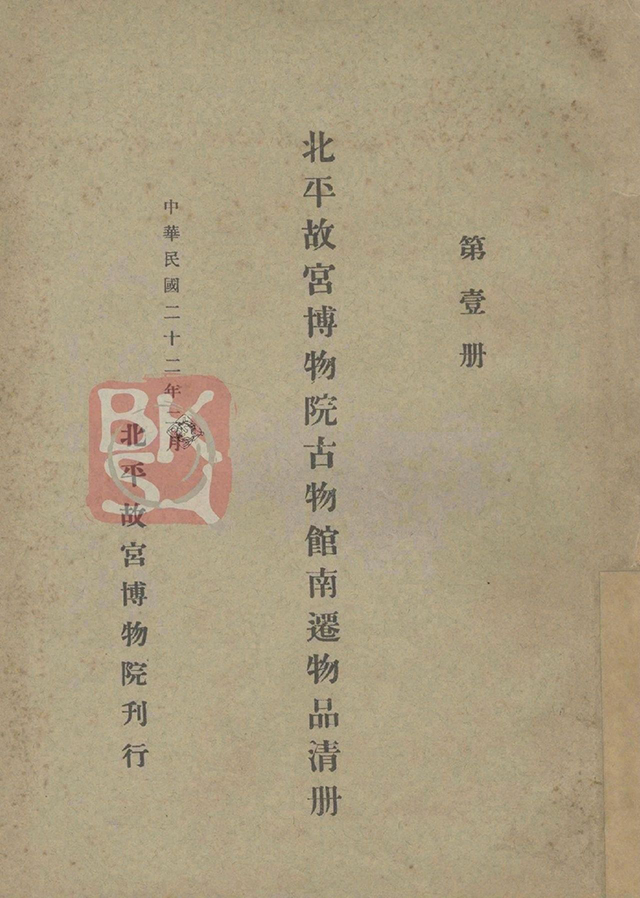 第壹册
北平故宮博物院古物館南遷物品清册
中華民國二十二年一月
北平故宮博物院刊行